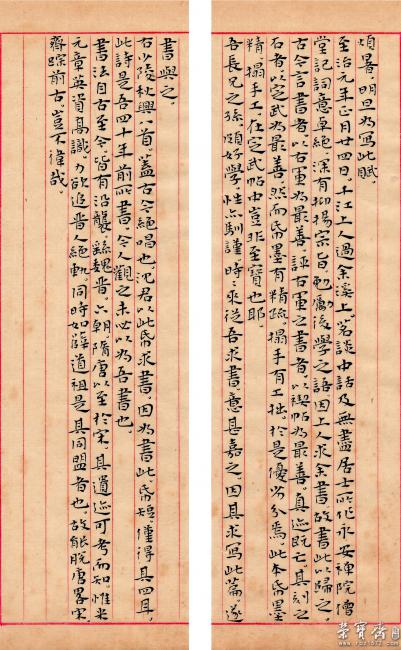 煩暑。明旦為寫此賦
至治元年正月廿四日。千江上人過余溪上。茗談中話及無盡居士所作永安禪院僧
堂記詞意卓絕。深有抑揚宗旨。勉勵後學之語。因上人求余書故書此以歸之。
古今言書者。以右軍為最善。評右軍之書者。以禊帖為最善。真迹既亡。其刻之
石者以定武為最善。然而帋墨有精疏。搨手有工拙。於是優劣分焉。此本帋墨
精。搨手工。在定武帖中豈非至寶也耶。
吾長兄之孫頗好學。性亦馴謹。時時求從吾求書。意甚嘉之。因其求寫此篇。遂
書與之。
右少陵秋興八首。蓋古今絕唱也。沈君以此帋求書。因為書此帋短。僅得其四耳。
此詩是吾四十年前所書。今人觀之未必以為吾書也。
書法自古至今。皆有沿襲。繇魏晉。六朝。隋唐以至於宋。其遺迹可考而知。惟米
元章英資高識。力欲追晉人絕軌。同時如薛道祖是其同盟者也。故能脫唐畧宋。
齊蹤前古。豈不偉哉。
榮寶齋